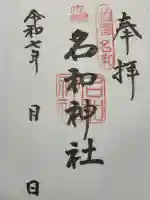 奉拝
名和神社
令和七年 月 日